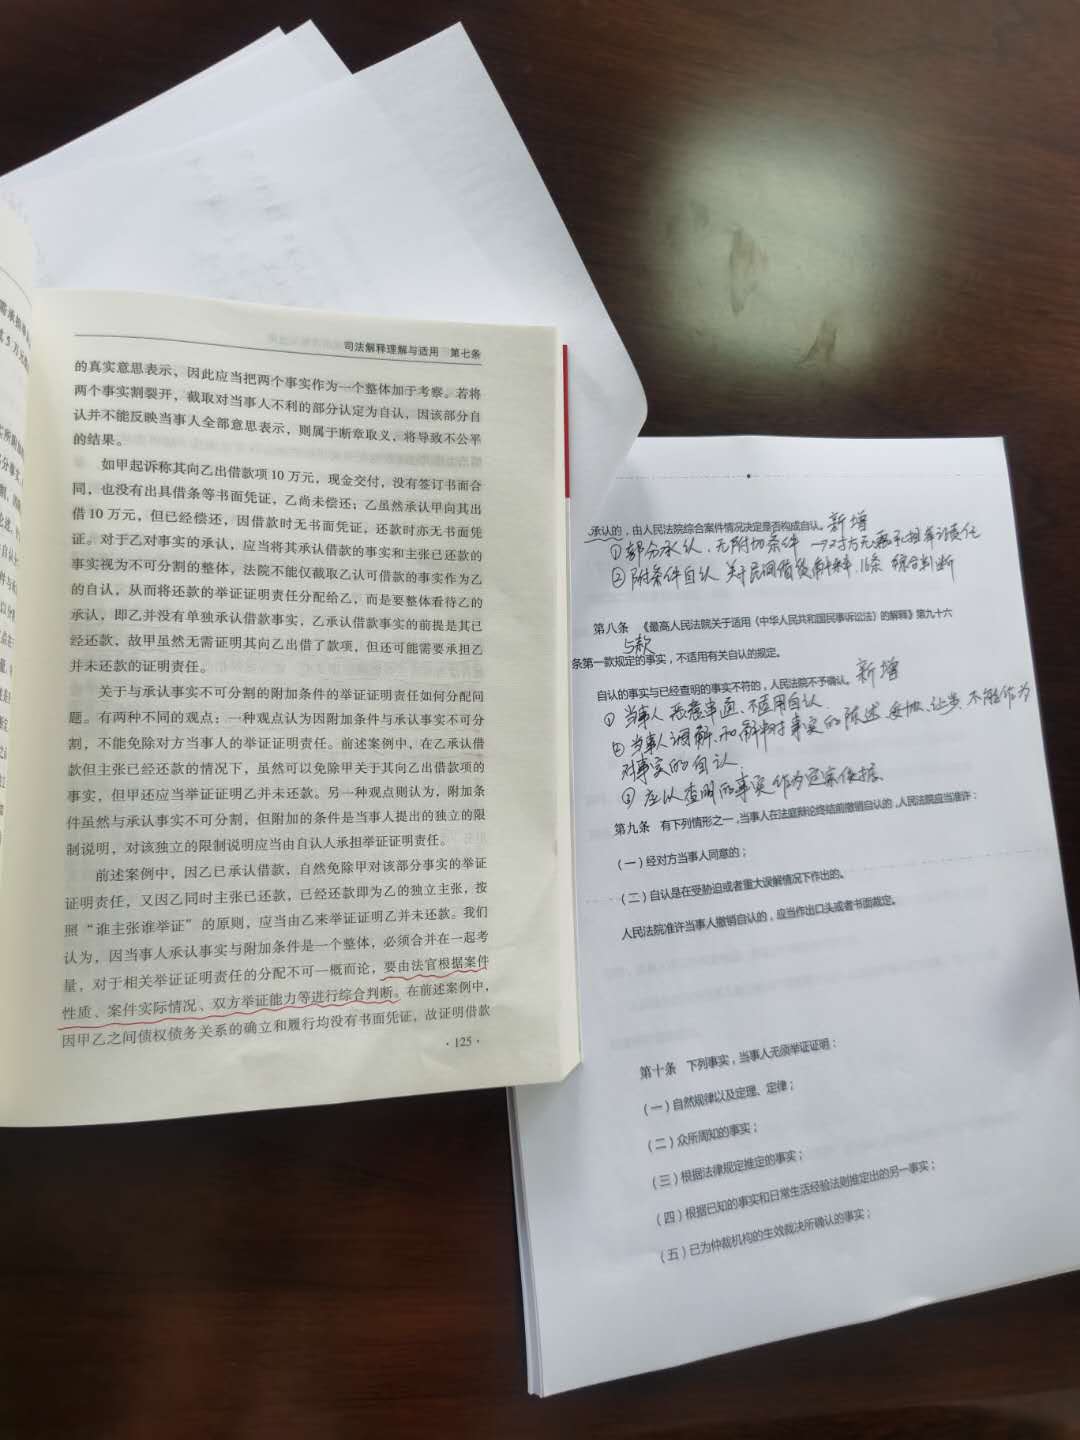 司法解释理解与适用 第七条
的真实意思表示，因此应当把两个事实作为一个整体加于考察。若将
两个事实割裂开，截取对当事人不利的部分认定为自认，因该部分自
认并不能反映当事人全部意思表示，则属于断章取义，将导致不公平
的结果。
如甲起诉称其向乙出借款项10万元，现金交付，没有签订书面合
同，也没有出具借条等书面凭证，乙尚未偿还；乙虽然承认甲向其出
借10万元，但已经偿还，因借款时无书面凭证，还款时亦无书面凭
证。对于乙对事实的承认，应当将其承认借款的事实和主张已还款的
事实视为不可分割的整体，法院不能仅截取乙认可借款的事实作为乙
的自认，从而将还款的举证证明责任分配给乙，而是要整体看待乙的
承认，即乙并没有单独承认借款事实，乙承认借款事实的前提是其已
经还款，故甲虽然无需证明其向乙出借了款项，但还可能需要承担乙
并未还款的证明责任。
关于与承认事实不可分割的附加条件的举证证明责任如何分配问
题。有两种不同的观点：一种观点认为因附加条件与承认事实不可分
割，不能免除对方当事人的举证证明责任。前述案例中，在乙承认借
款但主张已经还款的情况下，虽然可以免除甲关于其向乙出借款项的
事实，但甲还应当举证证明乙并未还款。另一种观点则认为，附加条
件虽然与承认事实不可分割，但附加的条件是当事人提出的独立的限
制说明，对该独立的限制说明应当由自认人承担举证证明责任。
前述案例中，因乙已承认借款，自然免除甲对该部分事实的举证
证明责任，又因乙同时主张已还款，已经还款即为乙的独立主张，按
照“谁主张谁举证”的原则，应当由乙来举证证明乙并未还款。我们
认为，因当事人承认事实与附加条件是一个整体，必须合并在一起考
量，对于相关举证证明责任的分配不可一概而论，要由法官根据案件
性质、案件实际情况、双方举证能力等进行综合判断。在前述案例中，
因甲乙之间债权债务关系的确立和履行均没有书面凭证，故证明借款
·125·
承认的，由人民法院综合案件情况决定是否构成自认。新增
①部分承认、无附加条件→对方无需承担举证责任
②附条件自认 关于民间借贷解释16条 综合判断
第八条 《最高人民法院关于适用〈中华人民共和国民事诉讼法〉的解释》第九十六
与款
条第一款规定的事实，不适用有关自认的规定。
自认的事实与已经查明的事实不符的，人民法院不予确认。新增
①当事人 恶意串通、不适用自认.
②当事人调解、和解对事实的陈述、妥协、让步、不能作为
对事实的自认.
③应以查明的事实作为定案依据.
第九条 有下列情形之一，当事人在法庭辩论终结前撤销自认的，人民法院应当准许：
（一）经对方当事人同意的；
（二）自认是在受胁迫或者重大误解情况下作出的。
人民法院准许当事人撤销自认的，应当作出口头或者书面裁定。
第十条 下列事实，当事人无须举证证明：
（一）自然规律以及定理、定律；
（二）众所周知的事实；
（三）根据法律规定推定的事实；
（四）根据已知的事实和日常生活经验法则推定出的另一事实；
（五）已为仲裁机构的生效裁决所确认的事实；